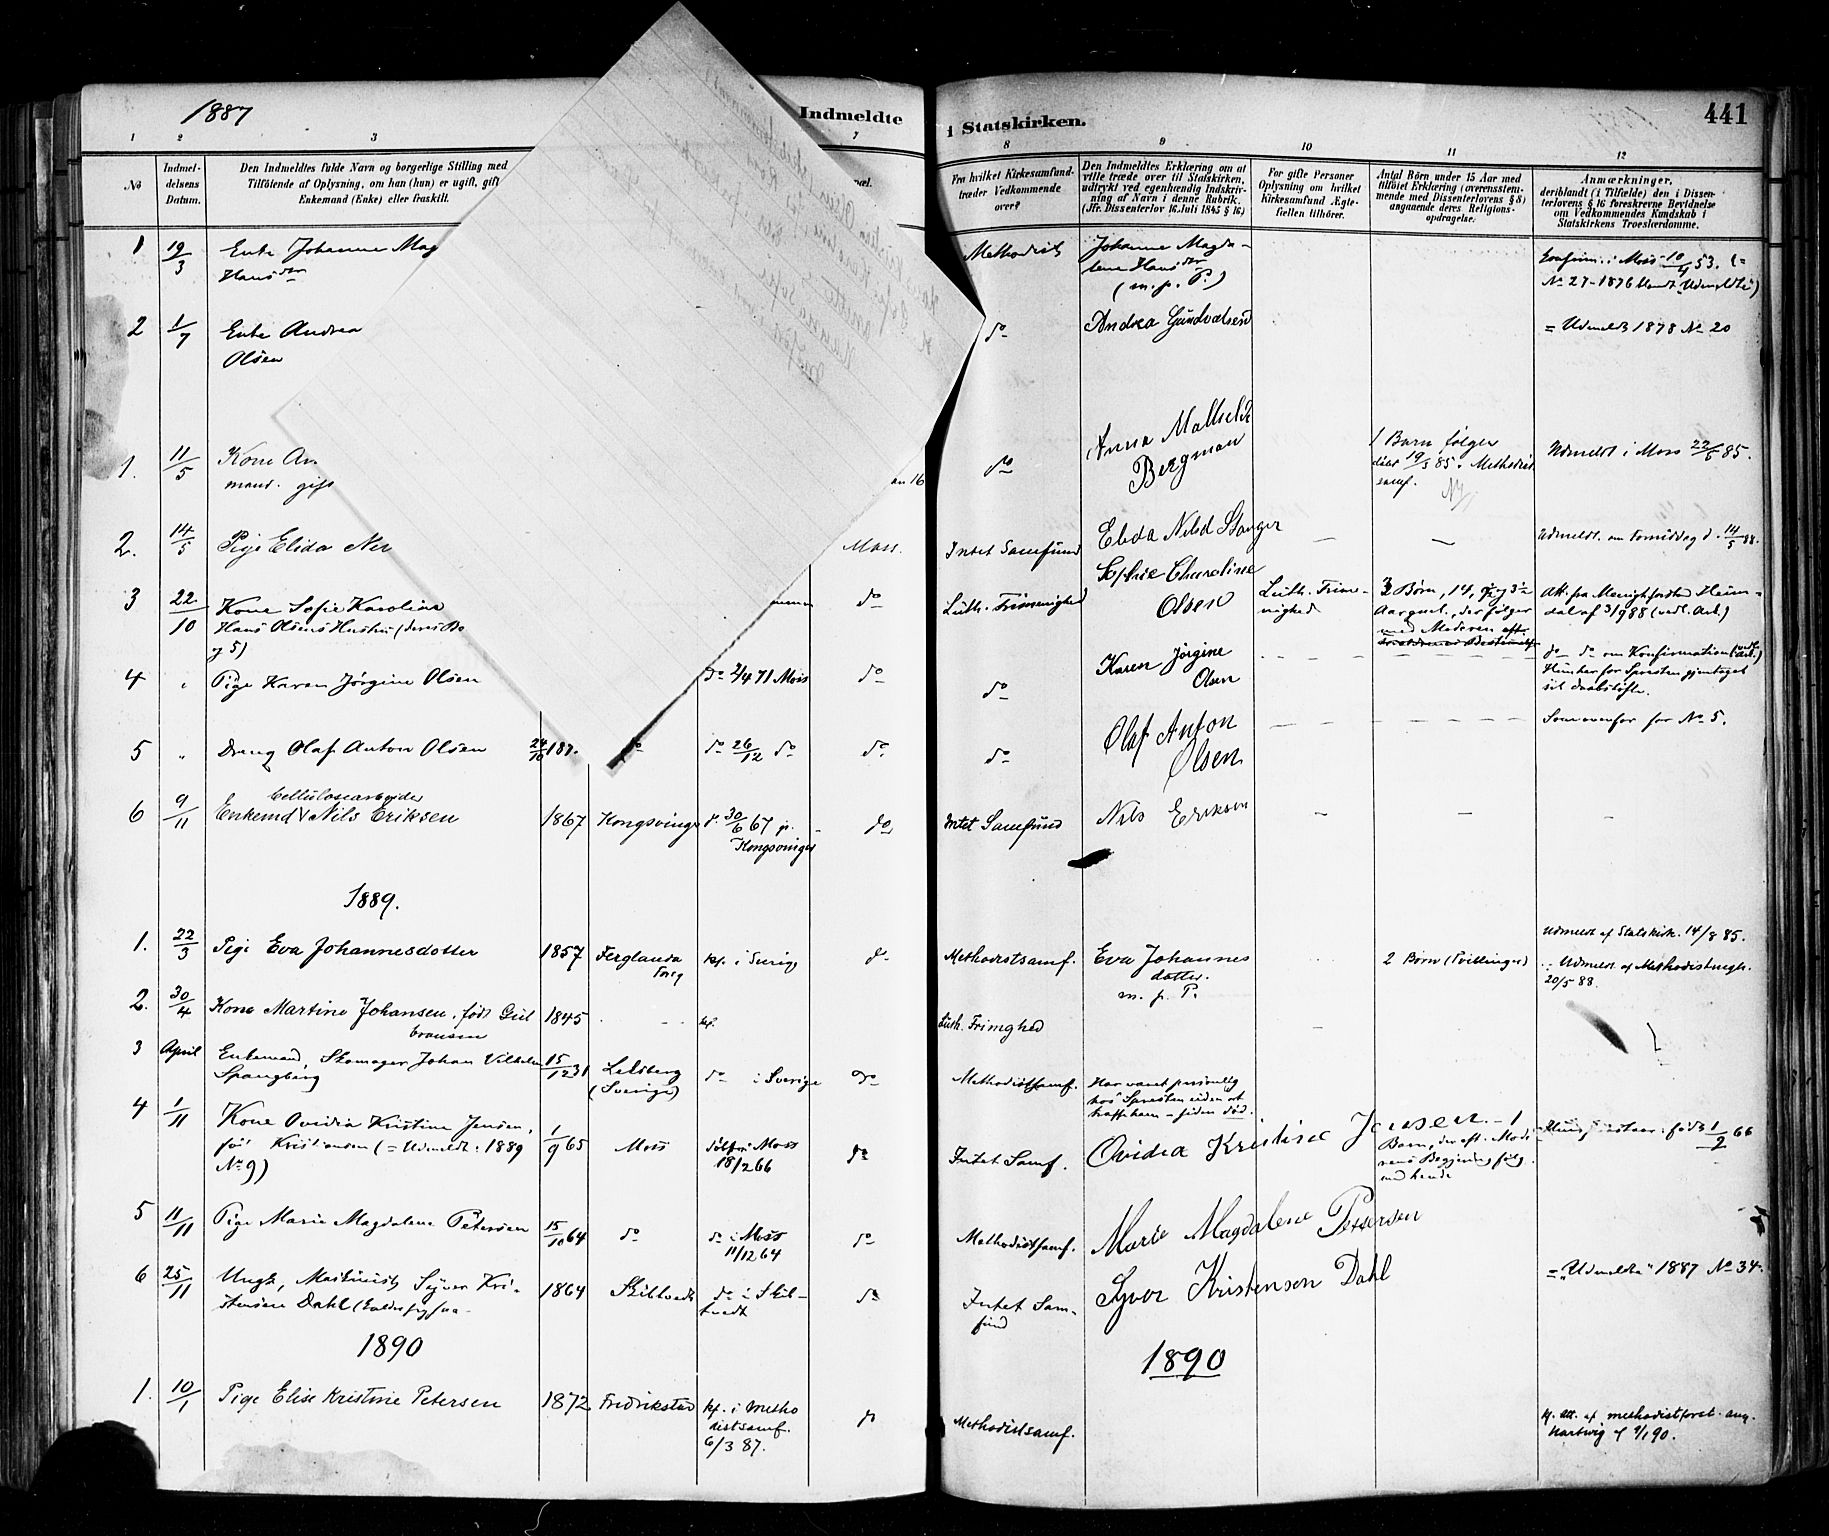 1887
Indmeldte
i Statskirken.
441
1
2
3
7
8
9
10
11
12
No
Indmel-
delsens
Datum.
Den Indmeldtes fulde Navn og borgerlige Stilling med
Tilföiende af Oplysning, om han (hun) er ugift, gift
Enkemand (Enke) eller fraskilt.
Fra hvilket Kirkesamfund
træder Vedkommende
over?
Den Indmeldtes Erklæring om at
ville træde over til Statskirken,
udtrykt ved egenhændig Indskriv-
ning af Navn i denne Rubrik.
(Jfr. Dissenterlov 16. Juli 1845 § 16.)
For gifte Personer
Oplysning om hvilket
Kirkesamfund Ægte-
fællen tilhörer.
Antal Börn under 15 Aar med
tilföiet Erklæring (overensstem-
mende med Dissenterlovens § 8)
angaaende deres Religions-
opdragelse.
Anmærkninger,
deriblandt (i Tilfælde) den i Dissen-
terlovens § 16 foreskrevne Bevidnelse
om Vedkommendes Kundskab i
Statskirkens Troeslærdomme.
1 19/3 Enke Johanne Mag
Hansdtr
Methodist
Johanne Magda-
lene Hansdtr
(m. p. P.)
Confirm. i Moss 10/4 53. (=
No 27 - 1876 blandt "Udmeldte")
2 1/7 Enke Andrea
Olsen
do
Andrea Gundvalsen
= Udmeldt 1878 No 20
1. 11/5 Kone An
mand. gift
an 16
do
Anna Mathilde
Bergman
1 Barn følger
døbt 19/3 85 i Methodist
samf.
Udmeldt i Moss 22/5 85.
2. 14/5 Pige Elida Ner
Moss.
Intet Samfund
Elida Nilsd Stanger
–
–
Udmeldt. om Formiddag d. 14/5 88.
3 22/10 Kone Sofie Karoline
Hans Olsens Hustru (deres Bo
og 5)
do
Luth. Frimenighed
Sophie Charoline
Olsen
Luth. Frime-
nighed
3 Børn, 14, 9 og 3½
Aar gml. der følger
med Moderen
Att. fra Menighedsfor Heim-
dal af 3/9 88 (vedl. Ark.)
4 " Pige Karen Jørgine Olsen
do 2/4 71 Moss
do
do
Karen Jørgine
Olsen
do do om Konfirmation (vedl. Ark.)
Hun har for Præsten gjentaget
sit Daabsløfte.
5 " Dreng Olaf Anton Olsen
24/10 187.
do
do 26/12 do
do
do
Olaf Anton
Olsen
Som ovenfor for No 5.
6 9/11 Cellulosearbeider
Enkemd Nils Eriksen
1867
Kongsvinger
d. 30/6 67 p.
Kongsvinger
do
Intet Samfund
Nils Eriksen
–
–
–
1889.
1. 22/3 Pige Eva Johannesdotter
1857
Ferglanda
Sverg
kf. i Sverige
do
Methodistsamf.
Eva Johannes
dotter.
m. p. P.
2 Børn (Tvillinger)
Udmeldt af Statskirk. 14/8 85.
: Udmeldt af Methodistmegh.
20/5 88.
2. 30/4 Kone Martine Johansen, født Gul
bransen
1845
kf.
Luth. Frimghed
3 April Enkemand, Skomager Johan Vilhelm
Spangberg
15/12 31
Lelsberg
(Sverige)
do i Sverige
do
Methodistsamf.
Har været personlig
hos Præsten uden at
træffe ham – siden død.
4 1/11 Kone Ovidia Kristine Jensen,
født Kristiansen (= Udmeldt: 1889
No 9)
1/9 65
Moss
døbt i Moss
18/2 66
do
Intet Samf.
Ovidia Kristine Jensen – 1
Barn, der eft. Mode
rens Begjæring følg.
med hende
født 1/2 66
5 11/11 Pige Marie Magdalene Petersen
15/10 64
do
do i Moss
11/12 64
do
Methodistsamf.
Marie Magdalene Petersen
6 25/11 Ungk. Maskinist Syver Kri-
stensen Dahl
1864
Skibtvedt
do i Skib-
tvedt
do
Intet Sam-
fund
Syver Kristensen Dahl
= "Udmeldte" 1887 No 34.
1890
1890
1. 10/1 Pige Elise Kristine Petersen
1872
Fredrikstad
kf. i Metho
distsamf.
6/3 87.
do
Methodistsamf.
kf. att. af methodistforst. ang.
Hartvig af 9/1 90.